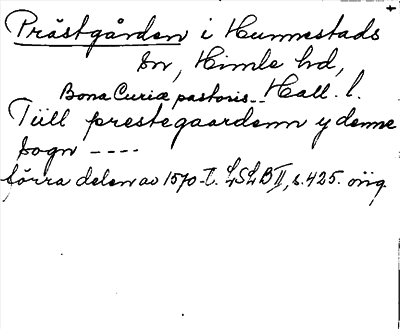 Prästgården i Hunnestads
sn, Himle hd,
Bona Curiæ pastoris.. Hall. l.
Till prestegaardenn y denne
sogn ----
Norra delen av 1570-t. LSLB II, s. 425. orig.